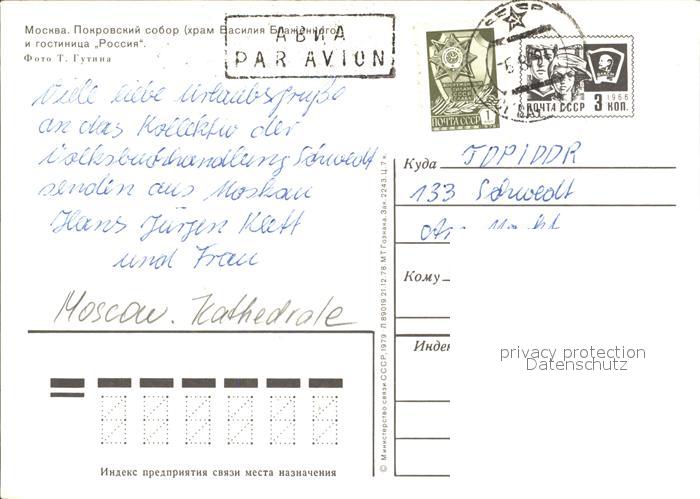 Москва. Покровский собор (храм Василия Блаженного)
и гостиница „Россия".
Фото Т. Гутина
АВИА
PAR AVION
СССР
ПОЧТА СССР 1
1966
ПОЧТА СССР 3 КОП.
Viele liebe Urlaubsgrüße
an das Kollektiv der
Volksbuchhandlung Schwedt
senden aus Moskau
Hans Jürgen Klett
und Frau
Moscow. Kathedrale
Куда ГДР/DDR
133 Schwedt
Кому
Индек
privacy protection
Datenschutz
Индекс предприятия связи места назначения
© Министерство связи СССР, 1979 Л 89019. 21.12.78. МТ Гознака. Зак. 2243. Ц. 7 к.